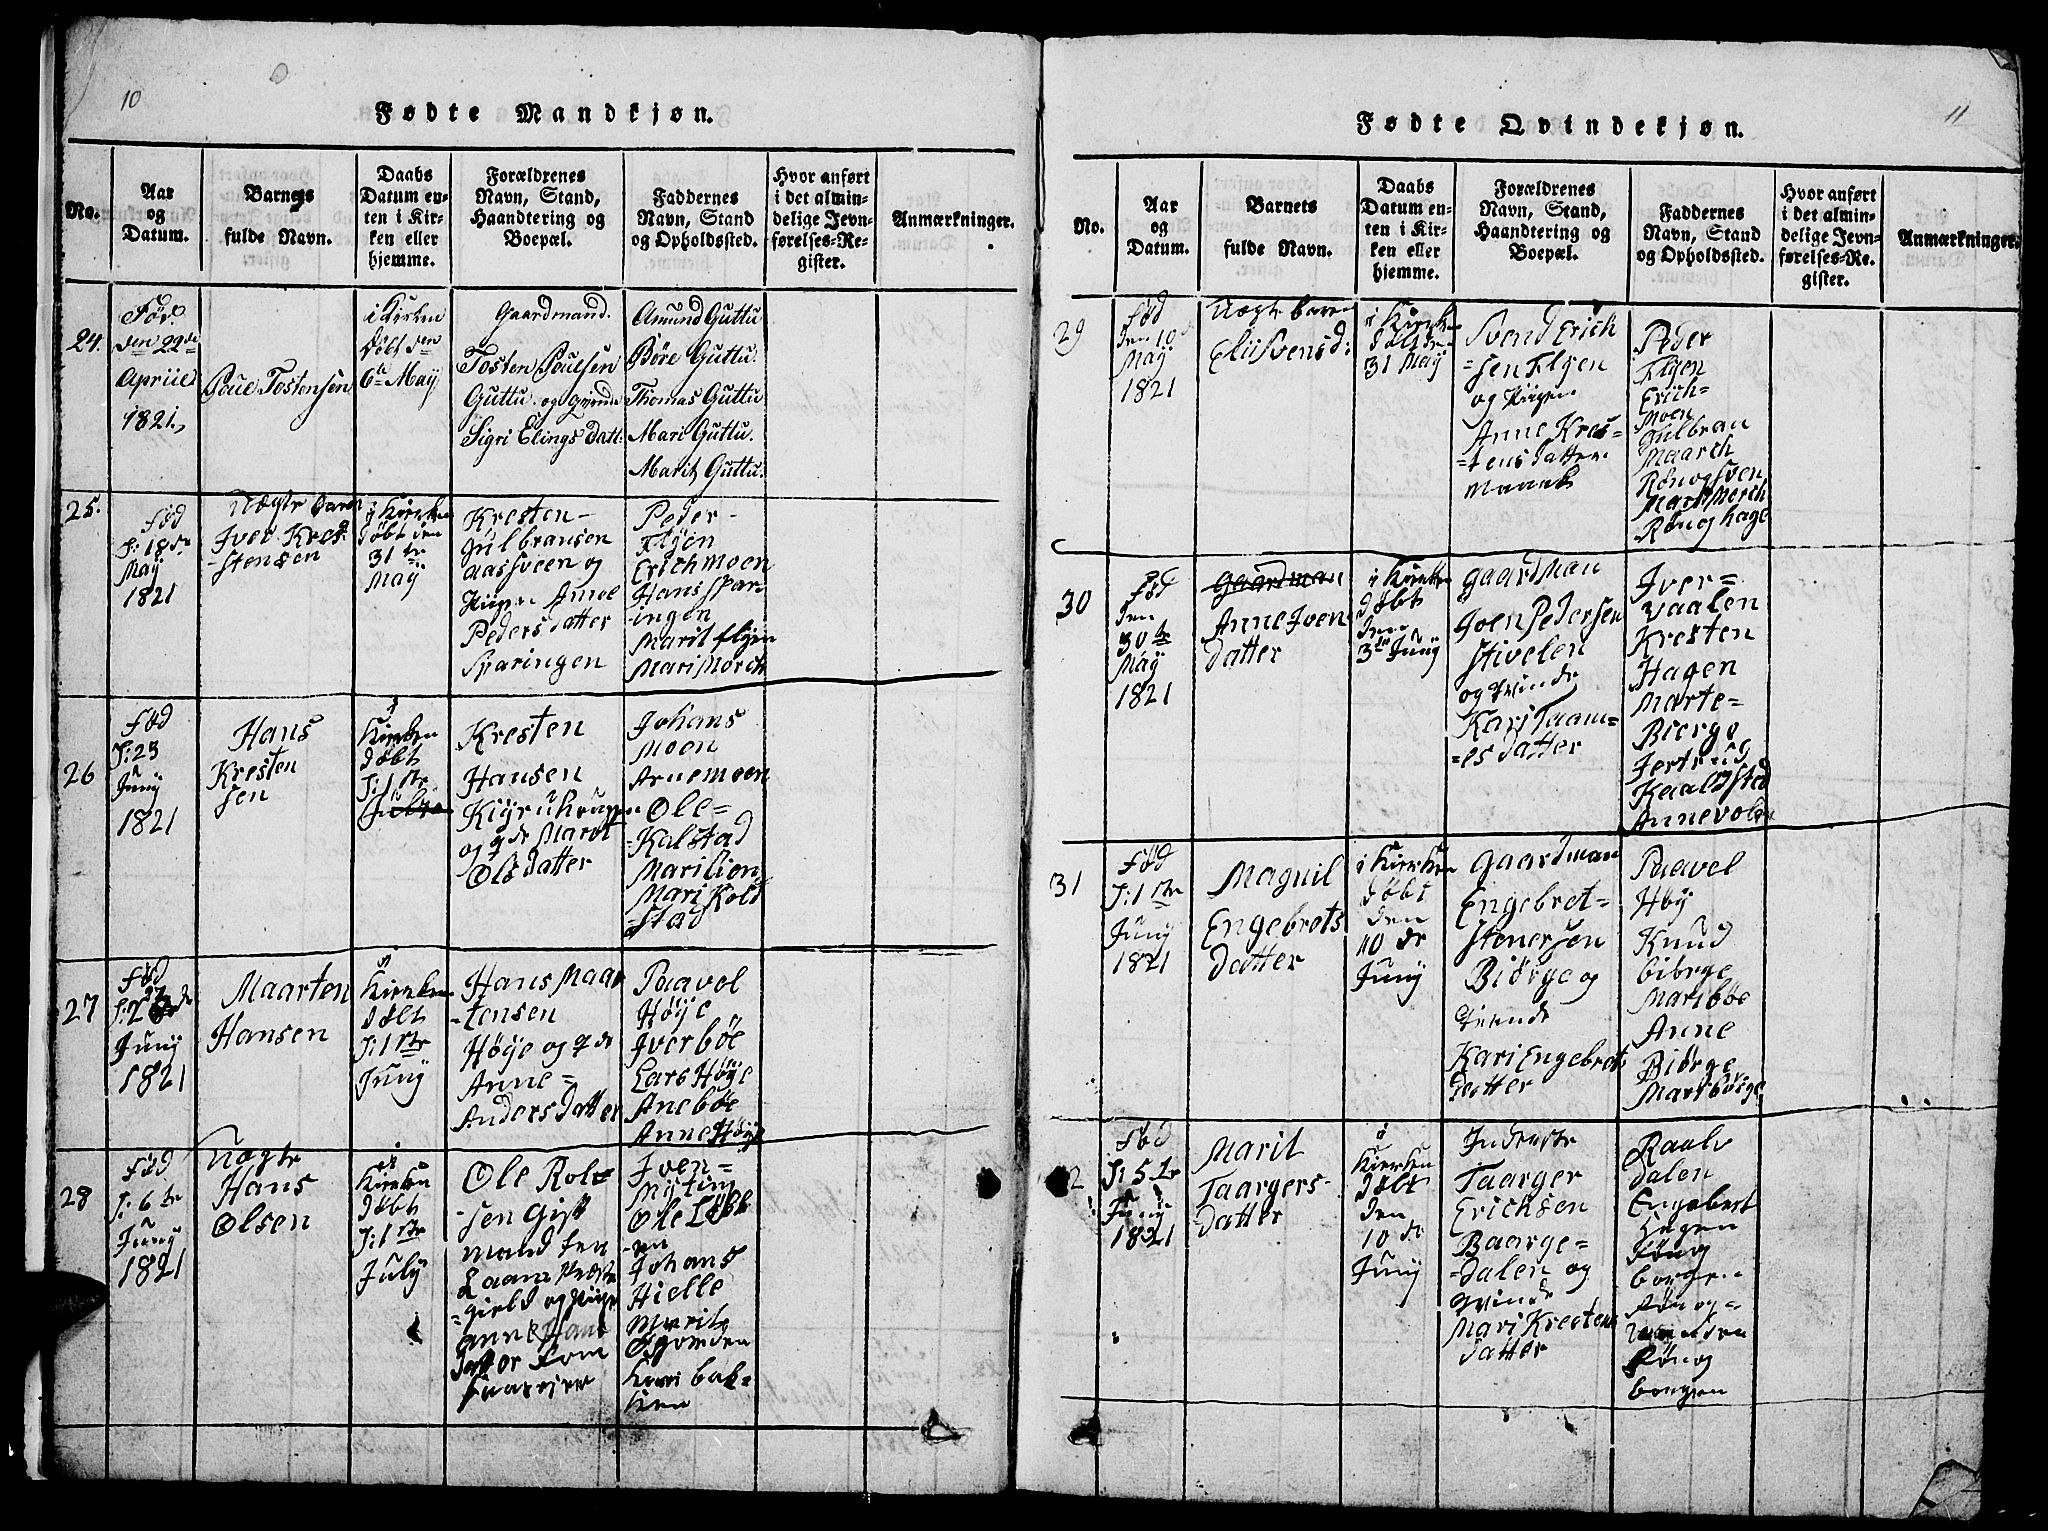 10
Fødte Mandkjøn.
No.
Aar
og
Datum.
Barnets
fulde Navn.
Daabs
Datum en-
ten i Kir-
ken eller
hjemme.
Forældrenes
Navn, Stand,
Haandtering og
Boepæl.
Faddernes
Navn, Stand
og Opholdssted.
Hvor anført
i det almin-
delige Jevn-
førelses-Re-
gister.
Anmærkninger.
24.
Fød.
den 22de
Apriil
1821.
Poul Tostensen
i Kirken
Døbt den
6te May
Gaardmand.
Tosten Poulsen
Guttu. og Qvinde
Sigri Elings Datt:
Amund Guttu
Børe Guttu
Thomas Guttu
Mari Guttu.
Marit Guttu.
25.
Fød
d: 18de
May
1821
Uægte Barn
Iver Kre-
stensen
i Kirken
døbt den
31te
May
Kresten
Gulbransen
Aassveen og
Pigen Anne
Peders datter
Sparingen
Peder
Flyen
Erich moen
Hans Spar-
ingen
Marit flyen
Mari Morch
26
Fød
d: 23
Juny
1821
Hans
Kresten
sen
i
Kirken
døbt
d: 1ste
Kresten
Hansen
og qde Marit
Ols datter
Johans
Moen
Arne moen
Ole-
Kalstad
Mari lien
Mari Kold
-stad
27
Fød
27
Juny
1821
Maarten
Hansen
i
Kirken
døbt
d: 1ste
Juny
Hans Maar
-tensen
Høye og qde
Anne-
Anders datter
Paavel
Høye
Iver bøe
Lars Høye
Ane bøe
Anne Høye
28
Fød
d: 6te
Juny
1821
Uægte
Hans
Olsen
i
Kirken
døbt
d: 1ste
July
Ole Role
-sen Gift
mand
Laame Præste
-gield og Pige
Anne Hans
datter
Iven-
Ole
-en
Johans
Hielle
Marit
Kari bak-
ken
11
Fødte Qvindekjøn.
No.
Aar
og
Datum.
Barnets
fulde Navn.
Daabs
Datum en-
ten i Kir-
ken eller
hjemme.
Forældrenes
Navn, Stand,
Haandtering og
Boepæl.
Faddernes
Navn, Stand
og Opholdssted.
Hvor anført
i det almin-
delige Jevn-
førelses-Re-
gister.
Anmærkninger.
29
Fød
den 10
May
1821
Uægte barn
Eli Svensd:
i Kirken
31 May
Svend Erich
-sen Flyen
og Pigen
Anne Kres-
-tens datter
Peder
Flyen
Erich-
Moen
Gulbran
Maarch
Rønog Sven
Marit Morch
Rønog hage
30
Fød
den
30te
May
1821
Gaardman
Anne Iven
datter
i Kirken
døbt
den
3die Juny
Gaardman
Iven Pedersen
Stivelen
og Qvinde
Kari Taam-
-es datter
Iver-
Vaalen
Kresten
Hagen
Marte-
Biørge
Jertrud
Kaalstad
Anne volen
31
Fød
d: 1ste
Juny
1821
Magnil
Engebrets
datter
i Kirken
døbt
den
10de
Juny
Gaardman
Engebret-
Stenersen
Biørge og
Qvinde
Kari Engebrets
datter
Paavel
Høy
Knud
Mari bøe
Anne
Biørge
Mari børge
2
Fød
d: 5te
Juny
1821
Marit
Taargers-
datter
i
Kirken
døbt
den
10de
Juny
Inderste
Taarger
Erichsen
Baarge-
-dalen og
Qvinde
Mari Krestens
datter
Raalv
dalen
Engebert
Hagen
Rønog
borgen
Røn og-
Rønog
borgen